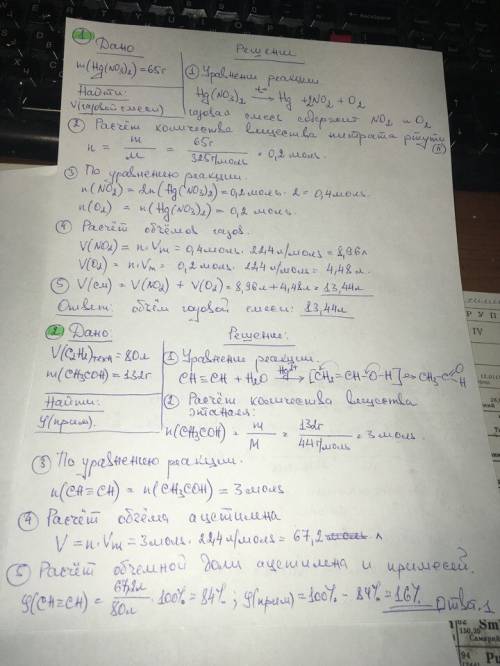 ① Дано
Решение
m(Hg(NO3)2)=65г
Найти:
V(газовой смеси)
① Уравнение реакции
Hg(NO3)2 t° → Hg + 2NO2 + O2
газовая смесь содержит NO2 и O2
② Расчёт количества вещества нитрата ртути (II)
n = m/M = 65г/325г/моль = 0,2 моль.
③ По уравнению реакции.
n(NO2) = 2n(Hg(NO3)2) = 0,2 моль · 2 = 0,4 моль.
n(O2) = n(Hg(NO3)2) = 0,2 моль.
④ Расчёт объёмов газов.
V(NO2) = n·Vm = 0,4 моль · 22,4 л/моль = 8,96 л
V(O2) = n·Vm = 0,2 моль · 22,4 л/моль = 4,48 л.
⑤ V(см) = V(NO2) + V(O2) = 8,96л + 4,48л = 13,44л
Ответ: объём газовой смеси: 13,44л
② Дано:
Решение:
V(C2H2)техн = 80л
m(CH3COH) = 132г
Найти:
φ(прим).
① Уравнение реакции.
CH≡CH + H2O Hg2+ → [CH2=CH-O-H] → CH3-C O H
② Расчёт количества вещества
этаналя:
n(CH3COH) = m/M = 132г/44г/моль = 3 моль.
③ По уравнению реакции.
n(CH≡CH) = n(CH3COH) = 3 моль
④ Расчёт объёма ацетилена
V = n·Vm = 3 моль · 22,4 л/моль = 67,2 л
⑤ Расчёт объёмной доли ацетилена и примесей.
φ(CH≡CH) = 67,2л/80л · 100% = 84%; φ(прим) = 100% - 84% = 16% Ответ.
РУП
IV
62 Sm
150,35
Самарий
94 Pu